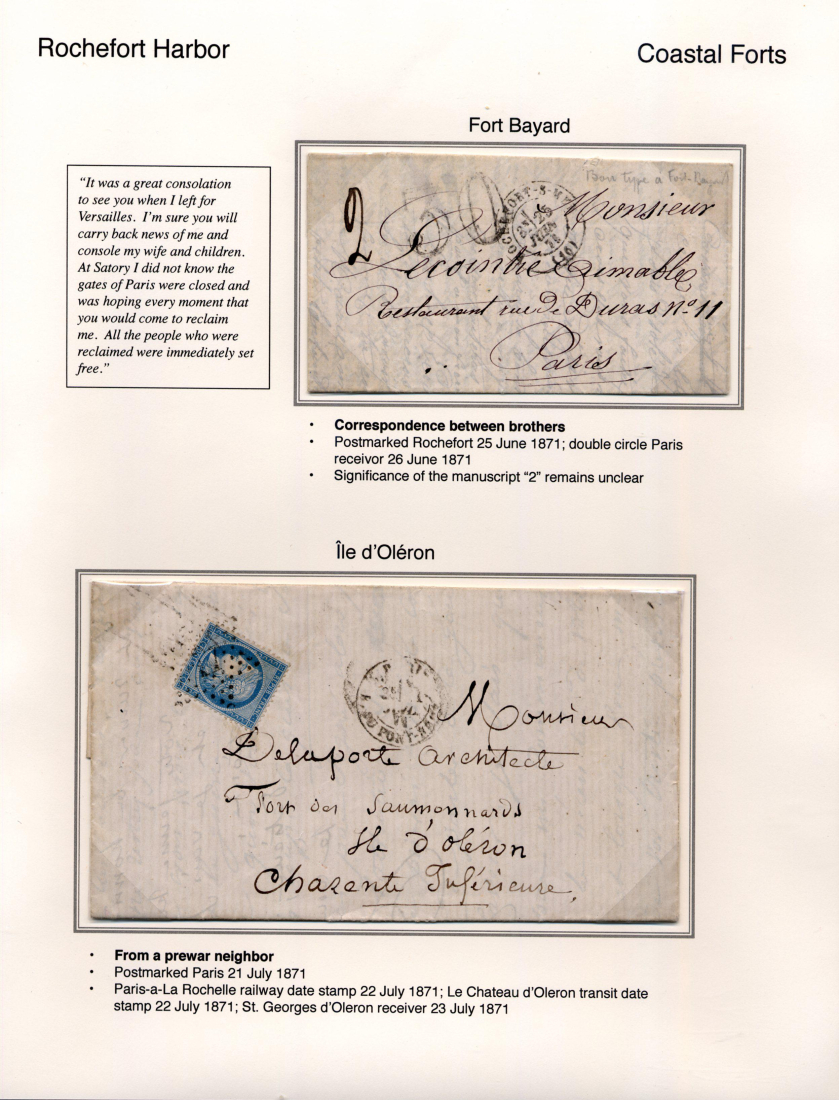 Rochefort Harbor
Coastal Forts
Fort Bayard
“It was a great consolation
to see you when I left for
Versailles. I’m sure you will
carry back news of me and
console my wife and children.
At Satory I did not know the
gates of Paris were closed and
was hoping every moment that
you would come to reclaim
me. All the people who were
reclaimed were immediately set
free.”
Bon type a Fort-Bayard
2
ROCHEFORT-S-M
25
JUIN
71
(16)
Monsieur
Lecointre Aimable
Restaurant rue De Duras No 11
Paris
• Correspondence between brothers
• Postmarked Rochefort 25 June 1871; double circle Paris
receivor 26 June 1871
• Significance of the manuscript “2” remains unclear
Île d’Oléron
R. DU PONT-NEUF
Monsieur
Delaporte Architecte
Fort des Saumonnards
Ile d’oléron
Charente Inférieure.
• From a prewar neighbor
• Postmarked Paris 21 July 1871
• Paris-a-La Rochelle railway date stamp 22 July 1871; Le Chateau d’Oleron transit date
stamp 22 July 1871; St. Georges d’Oleron receiver 23 July 1871